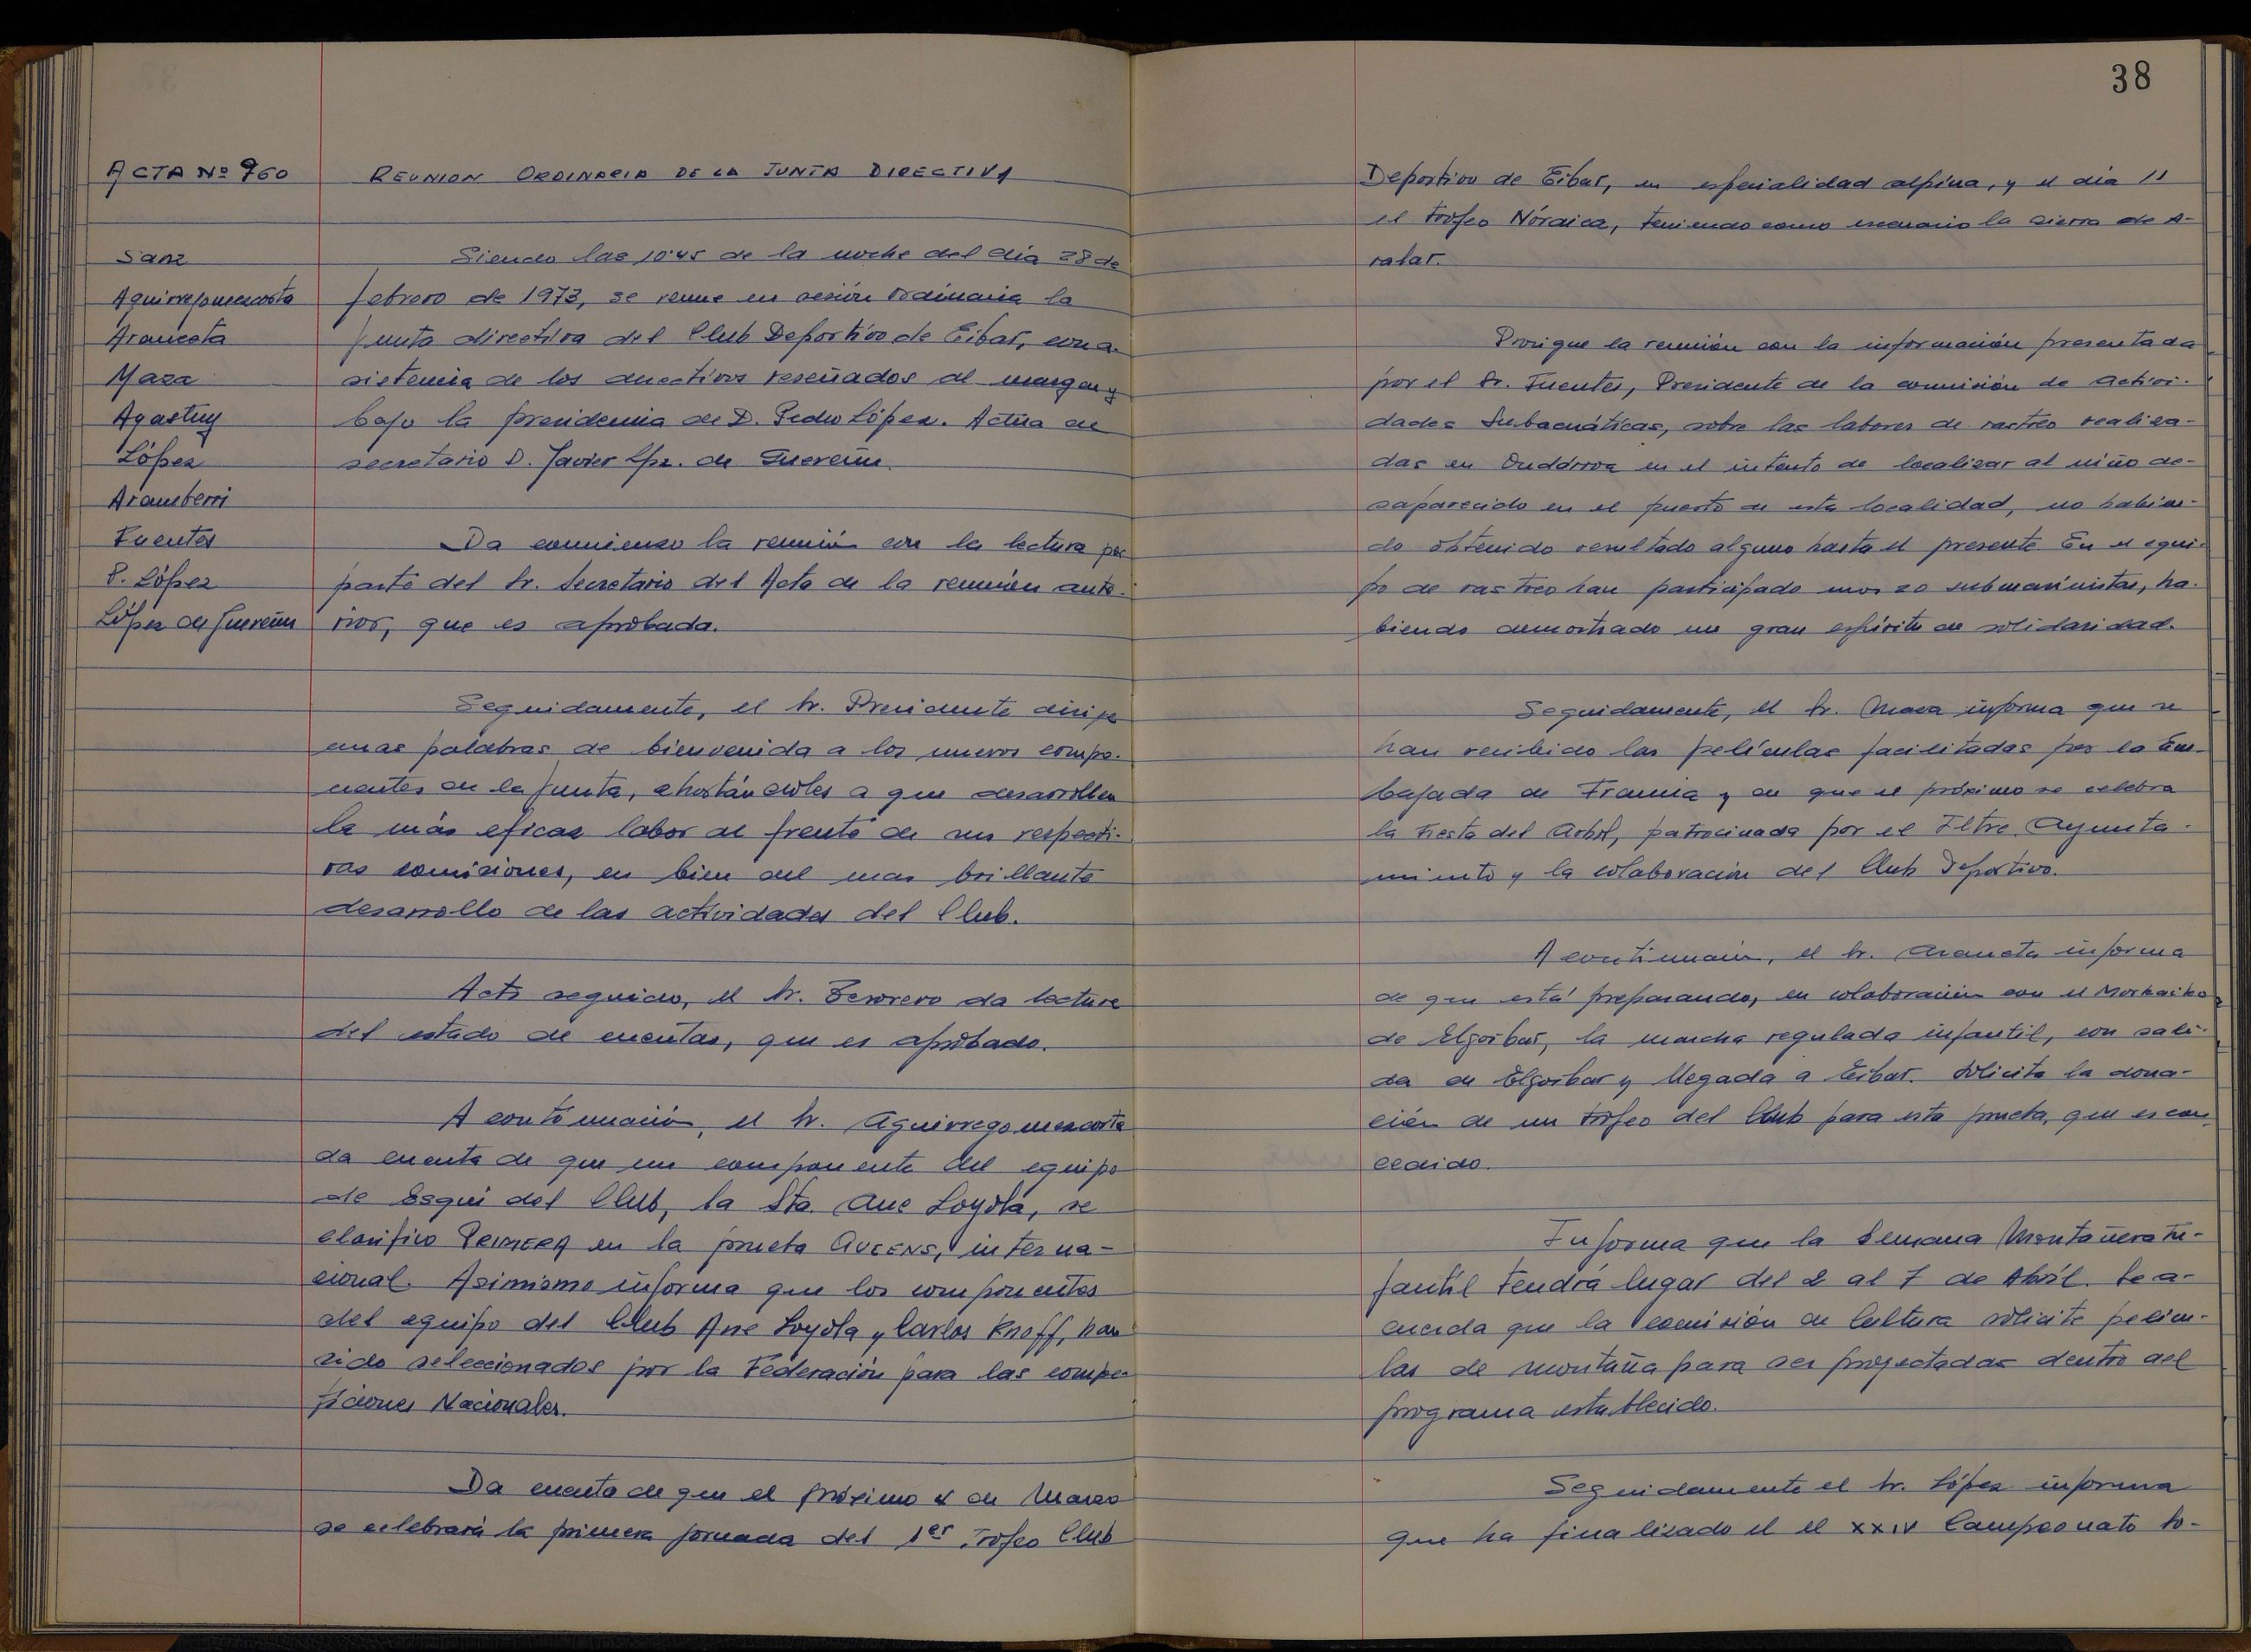 ACTA Nº 760
REUNION ORDINARIA DE LA JUNTA DIRECTIVA
Sanz
Aguirregomezcorta
Araneta
Maza
Agastuy
López
Aramberri
Fuentes
P. López
López de Guereñu
Siendo las 10'45 de la noche del día 28 de
febrero de 1973, se reune en sesión ordinaria la
junta directiva del Club Deportivo de Eibar, con a-
sistencia de los directivos reseñados al margen y
bajo la presidencia de D. Pedro López. Actúa de
secretario D. Javier Lpz. de Guereñu.
Da comienzo la reunión con la lectura por
parte del Sr. Secretario del Acta de la reunión ante-
rior, que es aprobada.
Seguidamente, el Sr. Presidente dirige
unas palabras de bienvenida a los nuevos compo-
nentes de la junta, exhortándoles a que desarrollen
la más eficaz labor al frente de sus respecti-
vas comisiones, en bien del mas brillante
desarrollo de las actividades del Club.
Acto seguido, el Sr. Tesorero da lectura
del estado de cuentas, que es aprobado.
A continuación, el Sr. Aguirregomezcorta
da cuenta de que un componente del equipo
de Esqui del Club, la Sta. Ane Loyola, se
clasifico PRIMERA en la prueba QUEENS, interna-
cional. Asimismo informa que los componentes
del equipo del Club Ane Loyola y Carlos Knoff, han
sido seleccionados por la Federación para las compe-
ticiones Nacionales.
Da cuenta de que el próximo 4 de Marzo
se celebrará la primera jornada del 1er Trofeo Club
38
Deportivo de Eibar, en especialidad alpina, y el día 11
el trofeo Nórdica, teniendo como escenario la sierra de A-
ralar.
Prosigue la reunión con la información presentada
por el Sr. Fuentes, Presidente de la comisión de Activi-
dades Subacuáticas, sobre las labores de rastreo realiza-
das en Ondárroa en el intento de localizar al niño de-
saparecido en el puerto de esta localidad, no habien-
do obtenido resultado alguno hasta el presente. En el equi-
po de rastreo han participado unos 20 submarinistas, ha-
biendo demostrado un gran espíritu de solidaridad.
Seguidamente, el Sr. Maza informa que se
han recibido las películas facilitadas por la Em-
bajada de Francia y de que el próximo se celebra
la Fiesta del Arbol, patrocinada por el Iltre. Ayunta-
miento y la colaboración del Club Deportivo.
A continuación, el Sr. Araneta informa
de que está preparando, en colaboración con el Morkaiko
de Elgoibar, la marcha regulada infantil, con sali-
da de Elgoibar y llegada a Eibar. Solicita la dona-
ción de un trofeo del Club para esta prueba, que es con-
cedido.
Informa que la Semana Montañera In-
fantil tendrá lugar del 2 al 7 de Abril. Se a-
cuerda que la comisión de Cultura solicite pelicu-
las de montaña para ser proyectadas dentro del
programa establecido.
Seguidamente el Sr. López informa
que ha finalizado el el XXIV Campeonato So-